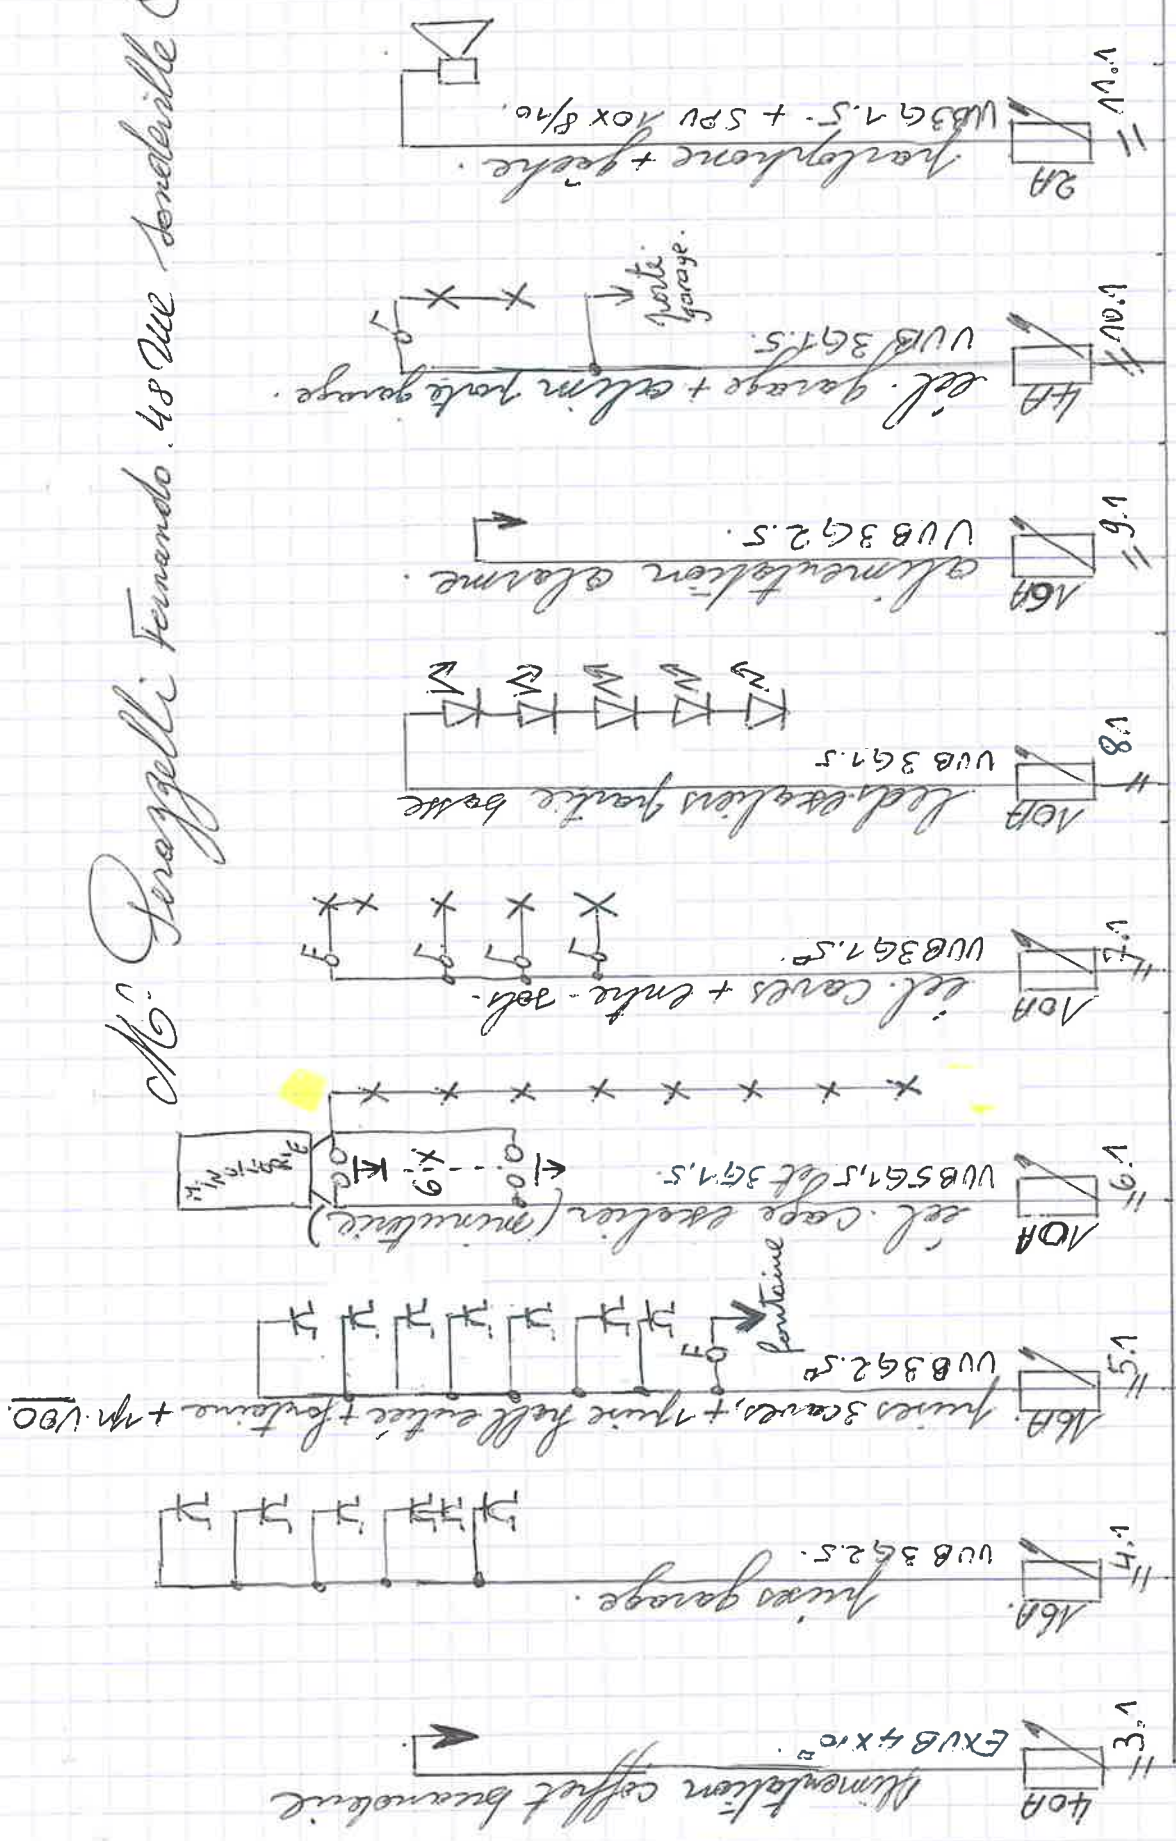 Mr Perazzelli Fernando. 48 Rue Sondeville
40A
3.1
Alimentation coffret buanderie
EXVB 4x10²
16A.
4.1
prises garage.
VVB 3G2.5.
16A.
5.1
prises 3caves, + 1prise hall entrée + fontaine +
VVB 3G2.5²
fontaine
10A
6.1
écl. cage escalier (minuterie)
VVB5G1,5 et 3G1.5.
6X
MINUTERIE
10A
7.1
écl. caves + entre-sols.
VVB3G1.5²
10A
8.1
leds escaliers partie basse
VVB 3G1.5
16A
9.1
alimentation alarme.
VVB 3G2.5.
4A
10.1
écl. garage + alim porte garage.
VVB 3G1.5.
porte
garage.
2A
11.1
parlophone + gâche.
VVB3G1.5. + SPV 10x8/10.